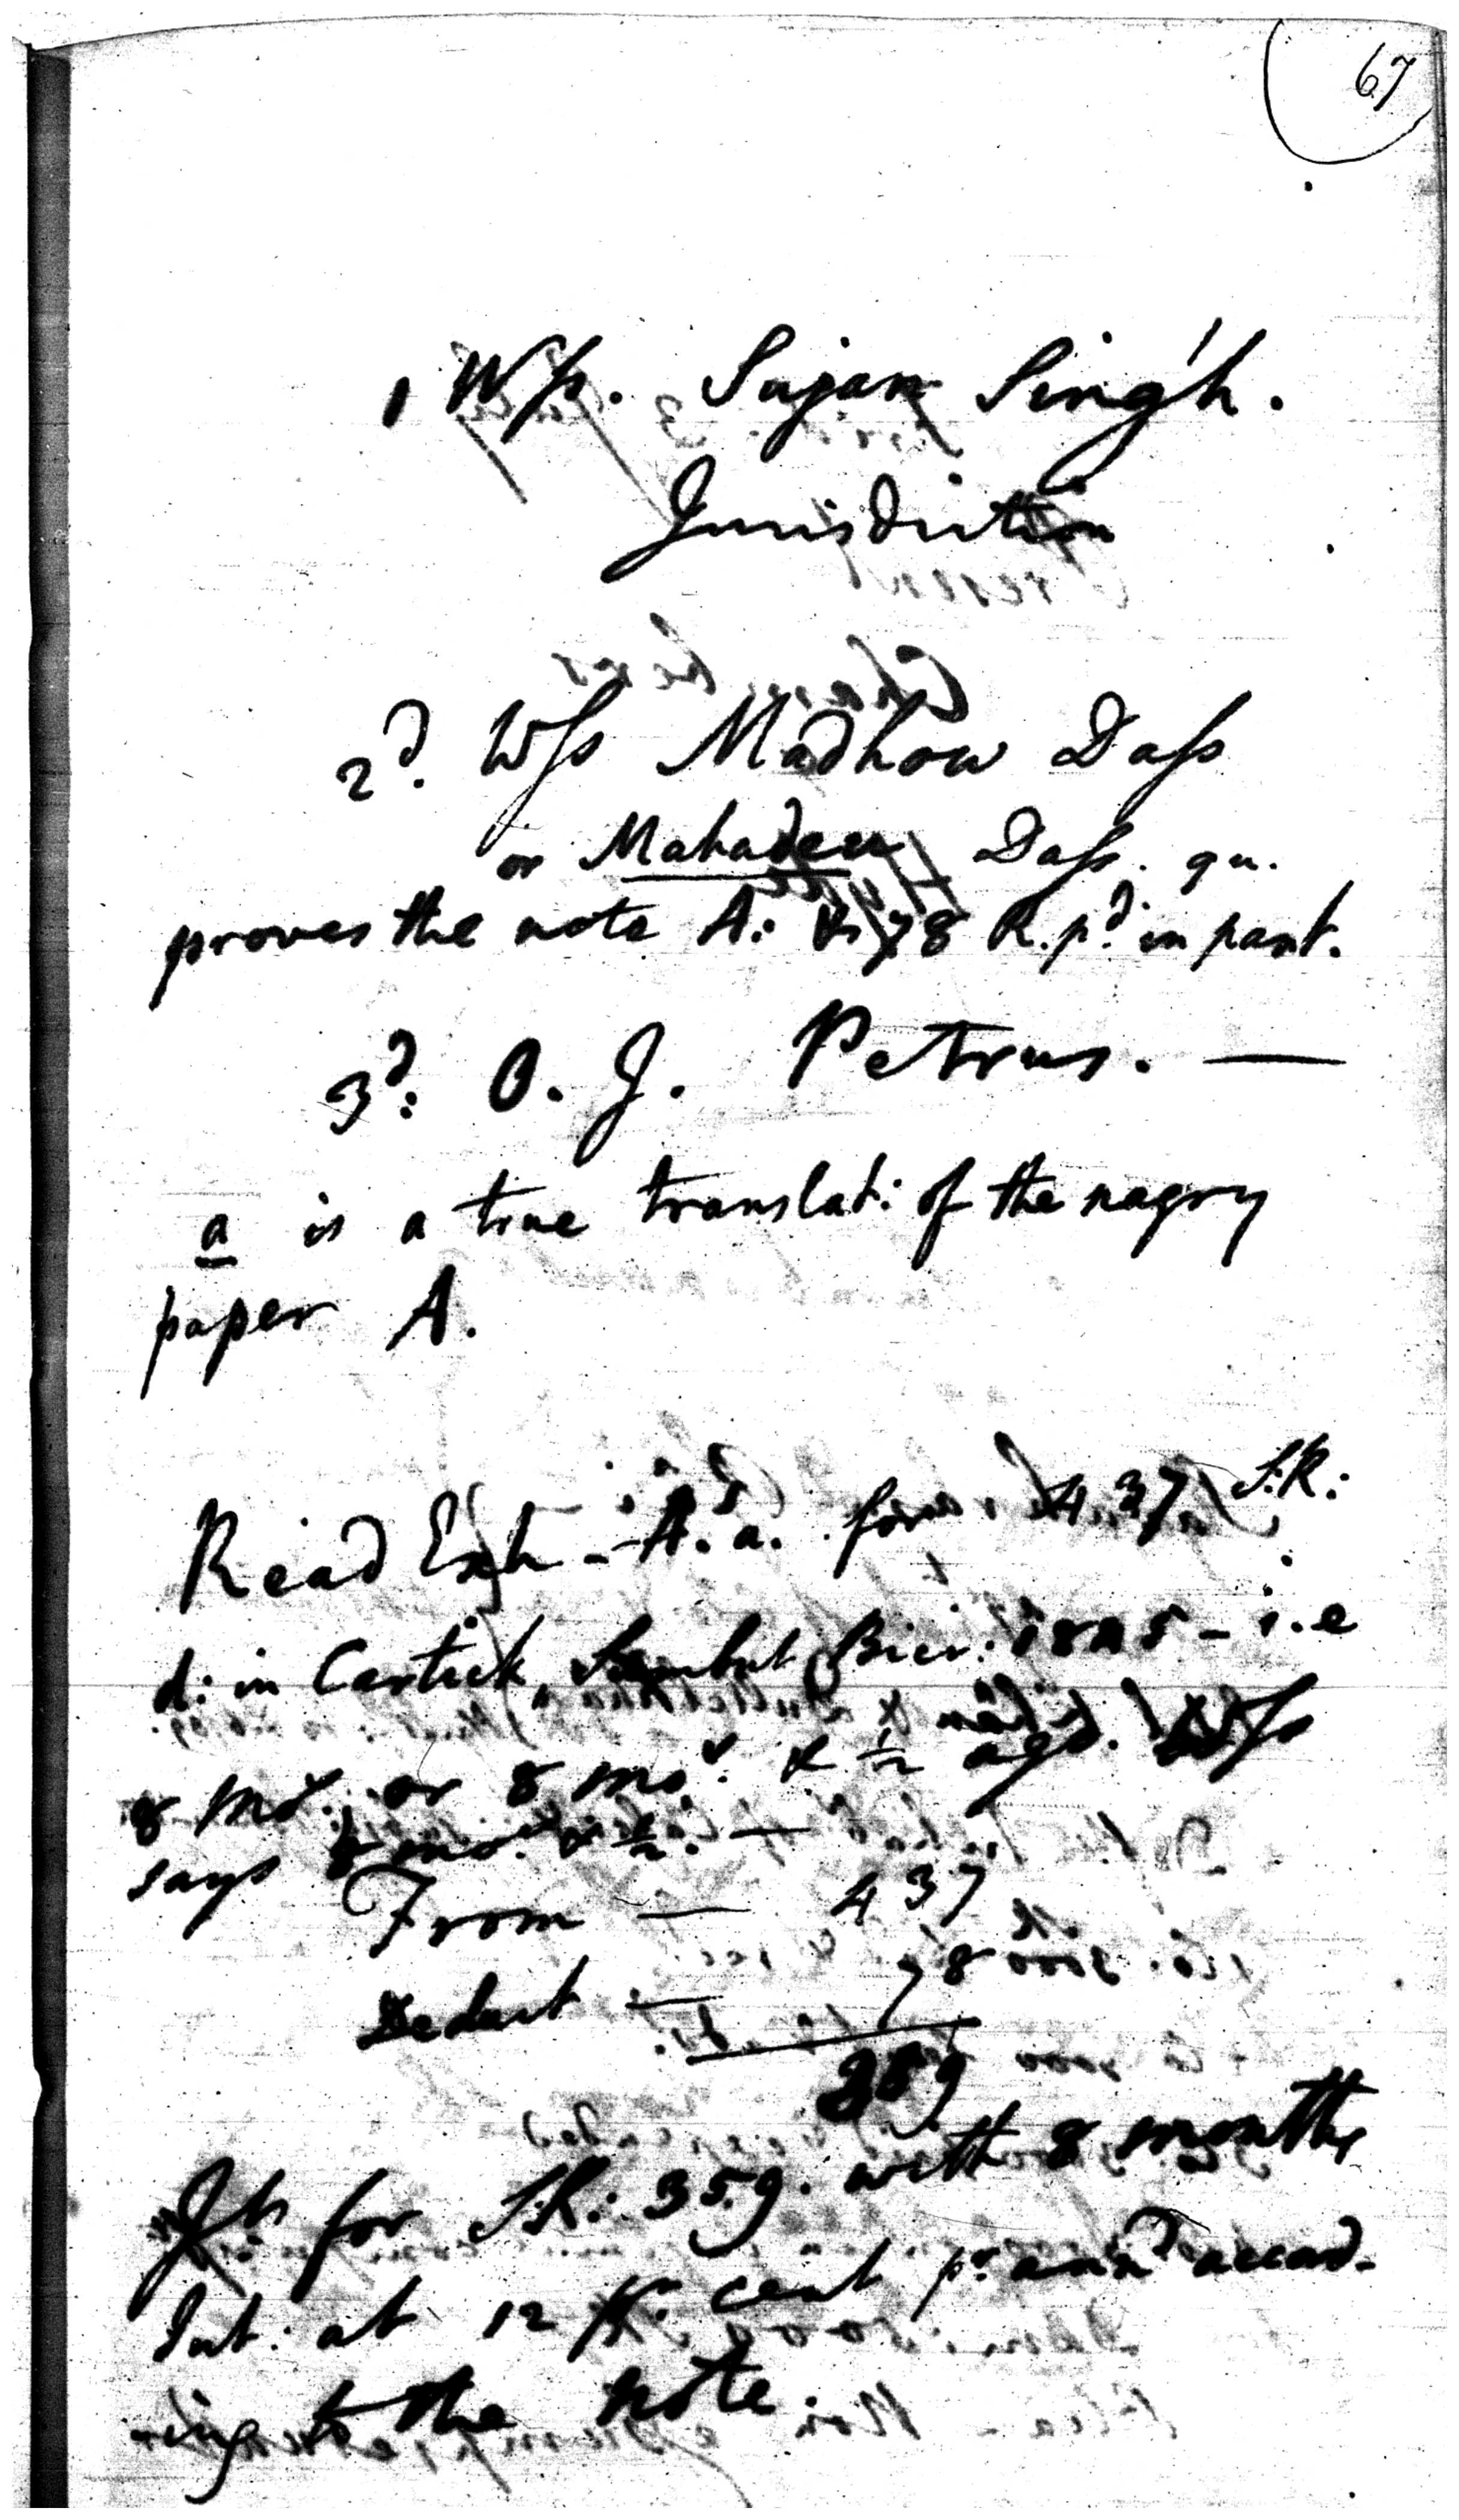 67
1 Wss. Sujan Singh.
Jurisdiction
2d. Wss Madhow Dass
or Mahadeu Dass. qu.
proves the note A: & 78 R. pd. in part.
3d: O. J. Petrus. —
a is a true translat: of the nagry
paper A.
Read Exh - A. a. for 437 S.R:
d: in Cartick, Sumbut Bicr: 1825 - i.e
8 mos. or 8 mos. & ½ ago. Wss
says 8 mos. & ½. —
From — 437
Deduct — 78
359
Jt for S.R: 359. with 8 months
Int: at 12 pr. cent pr. ann accord-
ing to the note.